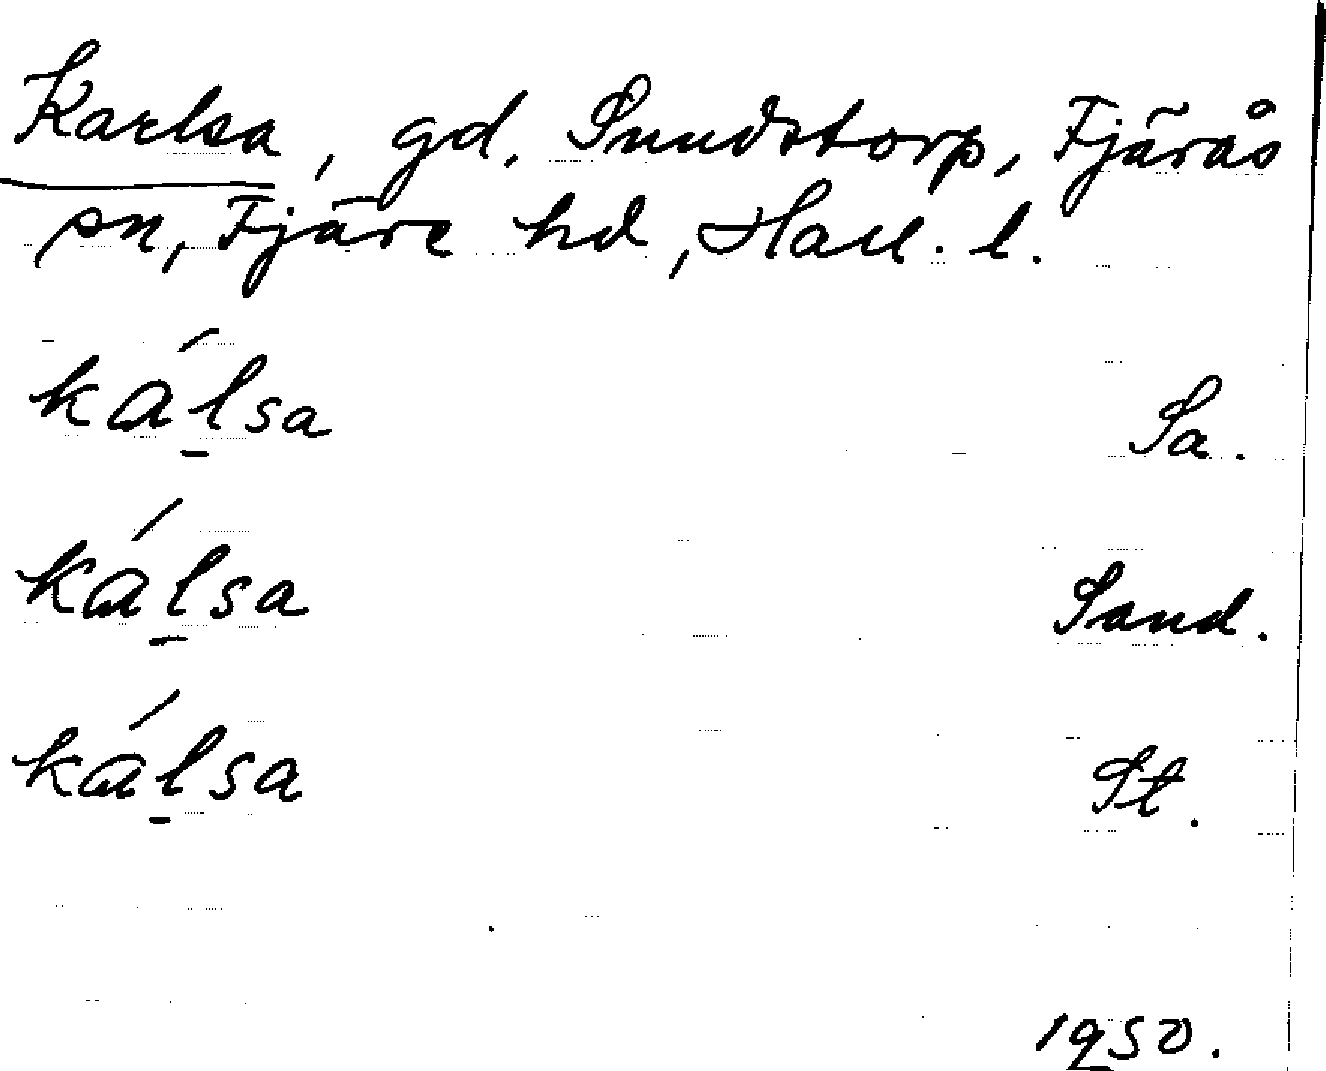 Karlsa, gd. Sundstorp, Fjärås
sn, Fjäre hd, Hall. l.
kálsa Sa.
kálsa Sand.
kálsa St.
1950.